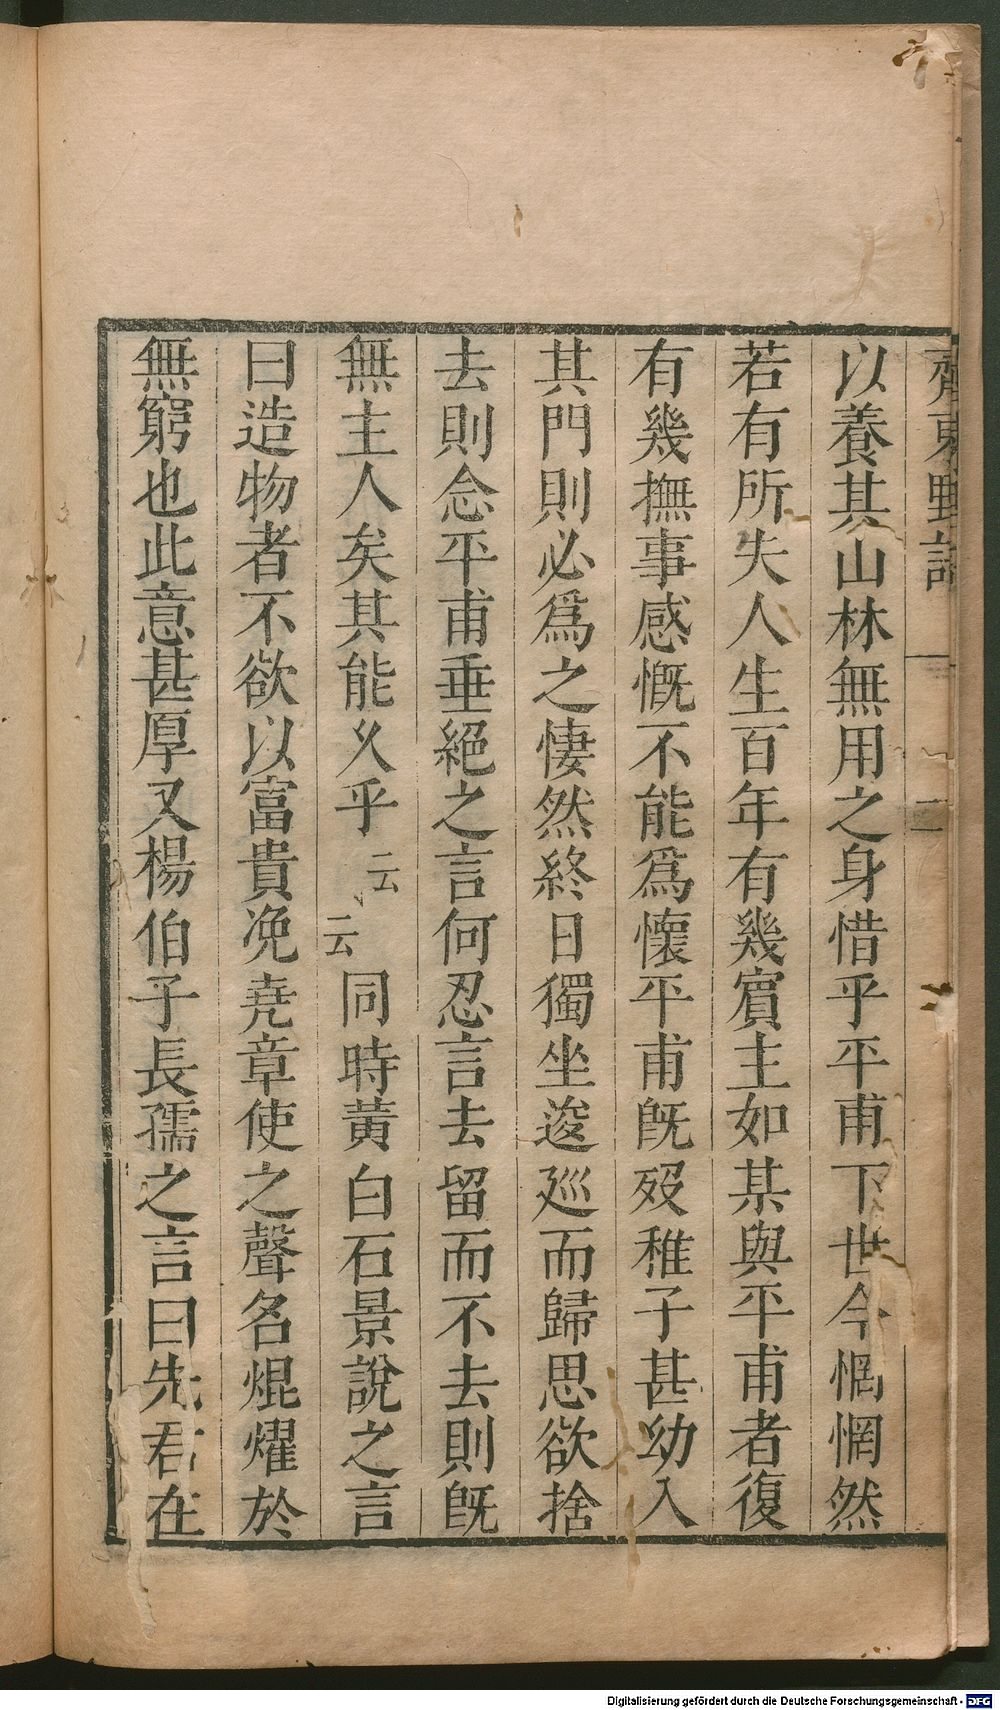 齊東野語
二
以養其山林無用之身惜乎平甫下世今惘惘然
若有所失人生百年有幾賓主如某與平甫者復
有幾撫事感慨不能爲懷平甫旣歿稚子甚幼入
其門則必爲之悽然終日獨坐逡巡而歸思欲捨
去則念平甫垂絕之言何忍言去留而不去則旣
無主人矣其能久乎云云同時黃白石景說之言
曰造物者不欲以富貴浼堯章使之聲名焜燿於
無窮也此意甚厚又楊伯子長孺之言曰先君在
Digitalisierung gefördert durch die Deutsche Forschungsgemeinschaft - DFG